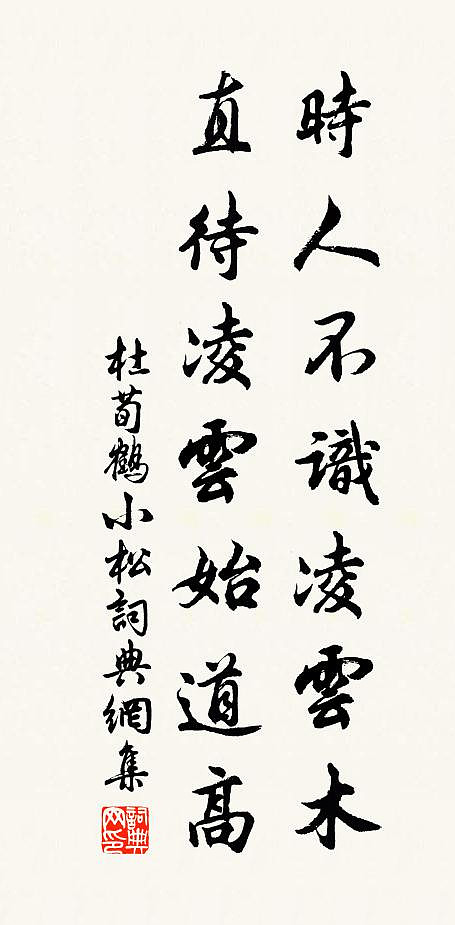 時人不識凌雲木
直待凌雲始道高
杜荀鶴小松詞典網集
詞典网印